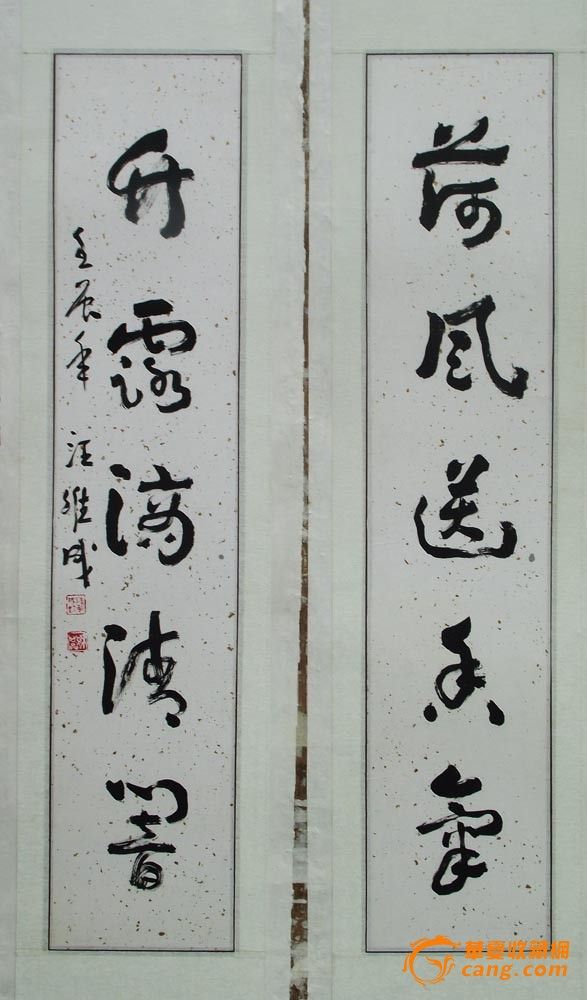 荷风送香氣
竹露滴清響
壬辰年 汪維成
華夏收藏網
cang.com